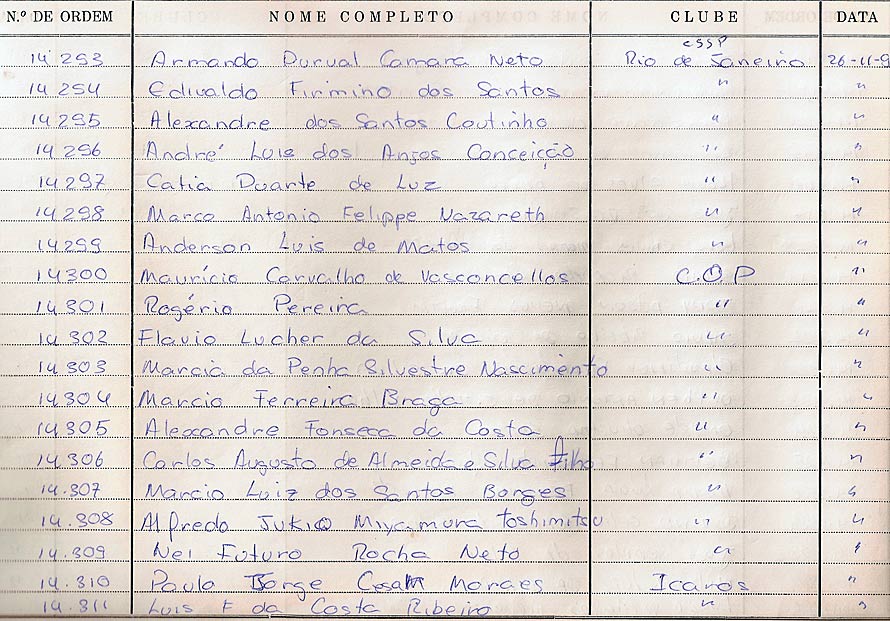 N.º DE ORDEM NOME COMPLETO CLUBE DATA
CSSP
14 293 Armando Durval Camara Neto Rio de Janeiro 26-11-9
14 294 Edivaldo Firmino dos Santos " "
14 295 Alexandre dos Santos Coutinho " "
14 296 André Luis dos Anjos Conceicção " "
14 297 Catia Duarte de Luz " "
14 298 Marco Antonio Felippe Nazareth " "
14 299 Anderson Luis de Matos " "
14 300 Maurício Carvalho de Vasconcellos C.O.P "
14 301 Rogério Pereira " "
14 302 Flavio Lucher da Silva " "
14 303 Marcia da Penha Silvestre Nascimento " "
14 304 Marcio Ferreira Braga " "
14 305 Alexandre Fonseca da Costa " "
14 306 Carlos Augusto de Almeida e Silva Filho " "
14.307 Marcio Luiz dos Santos Borges " "
14.308 Alfredo Jukio Miyamura Toshimitsu " "
14.309 Nei Futuro Rocha Neto " "
14.310 Paulo Jorge Moraes Icaros "
14.311 Luis F da Costa Ribeiro " "